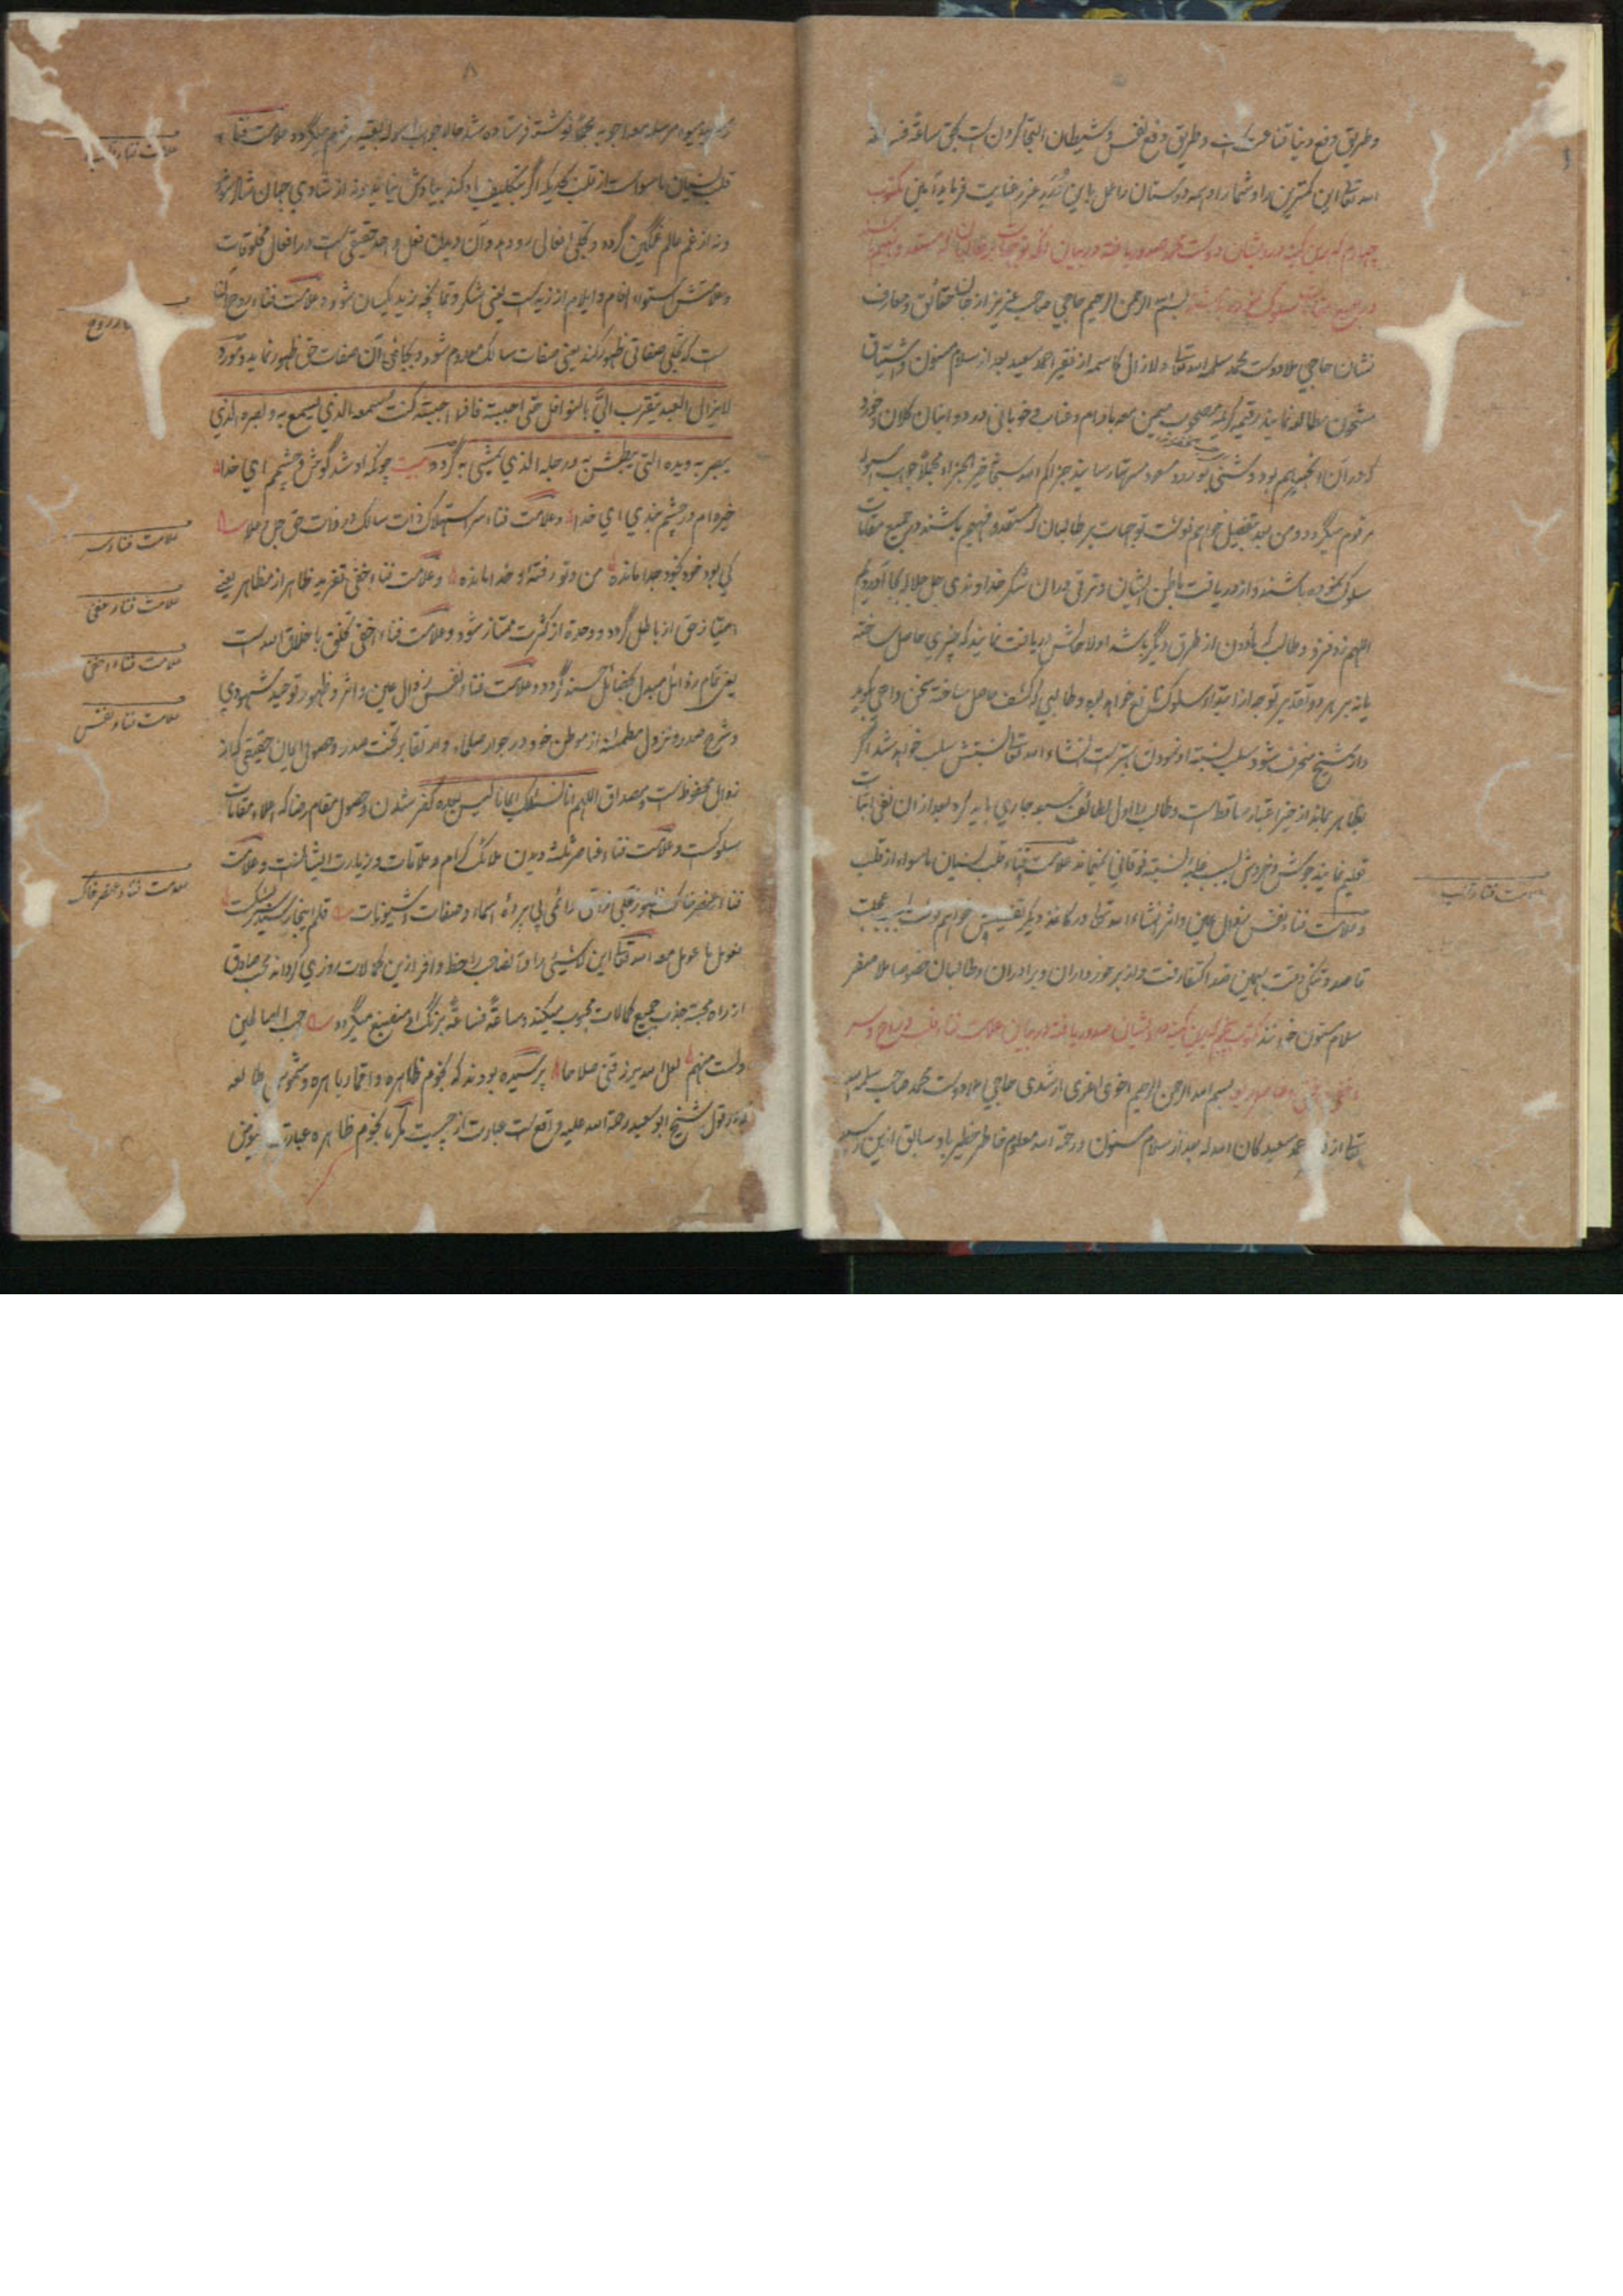 و طریق دفع دنیا قناعت است و طریق دفع نفس و شیطان التجا کردن است بحق ساعة فساعة
الله تعالی این کمترین را و شما را و همه دوستان را عمل باین عزیز عنایت فرماید آمین مکتوب
چهارم که باین کمینه درویشان دوست محمد صدور یافته در بیان آنکه توجهات بر طالبان که مستعد و فهیم باشند
در جمیع مقامات سلوک نموده باشند بسم الله الرحمن الرحیم حاجی صاحب عزیز از جان حقائق و معارف
نشان حاجی ملا دوست محمد سلمه الله تعالی و لازال کاسمه از فقیر احمد سعید بعد از سلام مسنون و اشتیاق
مشحون مطالعه نمایند رقیمه کریمه مصحوب معه بادام و عناب و خوبانی در دو انبان کلان و خورد
که در آن انجیر هم بود و شتی بورود مسعود رسانید جزاکم الله سبحانه خیر الجزاء مجملا جواب اسوله
مرقوم میگردد و من بعد بتفصیل خواهم نوشت توجهات بر طالبان که مستعد و فهیم باشند در جمیع مقامات
سلوک نموده باشند و از دریافت باطن ایشان و ترقی در آن شکر خداوندی جل جلاله بجا آوردیم
اللهم زد فزد و طالب که ماذون از طرق دیگر باشد اولا حالش دریافت نمایند که چیزی حاصل ساخته
یا نه بر هر دو تقدیر توجه از ابتداء سلوکش نافع خواهد بود و طالبی که کشف حاصل ساخته سخن واهی گوید
و از شیخ منحرف شود سلب نسبت او نمودن بهتر است انشاء الله تعالی نسبتش سلب خواهد شد اگر
بظاهر بماند از حیز اعتبار ساقط است و طالب را اول لطائف سبعه جاری باید کرد بعد از آن نفی اثبات
تعلیم نمایند جوش و خروش بسبب غلبه نسبة فوقانی نمیماند علامت فناء قلب نسیان ماسواء از قلب
و علامت فناء نفس زوال عین و اثر انشاء الله تعالی در کاغذ دیگر خواهم نوشت بسبب عجلت
قاصد و تنگی وقت بهمین قدر اکتفا رفت ولد برخورداران و برادران و طالبان خصوصا ملا صفر
سلام مسنون خوانند مکتوب پنجم که باین کمینه درویشان صدور یافته در بیان علامت فناء قلب و روح و سر
بسم الله الرحمن الرحیم اخوی اعزی ارشدی حاجی ملا دوست محمد صاحب سلمه الله
تعالی از احمد سعید کان الله له بعد از سلام مسنون و رحمة الله معلوم خاطر خطیر باد سابق ازین
علامت فناء قلب
مرسله معه اجوبه نوشته فرستاده شد حالا جواب اسوله بقیه مرقوم میگردد علامت فناء
قلب نسیان ماسواست از قلب بحدیکه اگر بتکلیف یاد کند بیادش نیاید و نه از شادی جهان شاد شود
و نه از غم عالم غمگین گردد و تجلی افعالی رو دهد و آن دیدن فعل واحد حقیقی است در افعال مخلوقات
و علامتش استواء انعام و ایلام از زید است یعنی شکر و طمانچه زید یکسان شود و علامت فناء روح آن
ست که تجلی صفاتی ظهور کند یعنی صفات سالک معدوم شود و بجای آن صفات حق ظهور نماید
لایزال العبد یتقرب الیّ بالنوافل حتی احببته فاذا احببته کنت سمعه الذی یسمع به و بصره الذی
یبصر به و یده التی یبطش به و رجله الذی یمشی به گردد بیت چونکه او شد گوش و چشم ای خدا
خیره ام در چشم بندی ای خدا و علامت فناء سر استهلاک ذات سالک در ذات حق جل و علا
کی بود خود کی بود جدا مانده من و تو رفته و خدا مانده و علامت فناء خفی تفرید ظاهر از مظاهر یعنی
امتیاز حق از باطل گردد و وحدة از کثرت ممتاز شود و علامت فناء اخفی تخلق باخلاق الله است
یعنی تمام رذائل مبدل بفضائل حسنه گردد و علامت فناء نفس زوال عین و اثر و ظهور توحید شهودی
و شرح صدر و نزول مطمئنه از موطن خود در جوار صلحاء و ارتقا بر تخت صدر و حصول ایمان حقیقی که از
زوال محفوظ است و مصداق اللهم انا نسئلک ایمانا لیس بعده کفر شدن و حصول مقام رضا که اعلاء مقامات
سلوکست و علامت فناء عناصر ثلثه دیدن ملائک کرام و ملاقات و زیارت ایشانست و علامت
فناء عنصر خاک ظهور تجلی ذاتی دائمی بی پردهٔ اسماء و صفات و شیونات قلم اینجا رسید سر بشکست
الله تعالی این لاشیئ را و آنصاحب را حظ وافر ازین کمالات روزی گرداند محب صادق
از راه محبة جذب جمیع کمالات محبوب میکند و ساعة فساعة برنگ او منصبغ میگردد احب الصالحین
و لست منهم لعل الله یرزقنی صلاحا پرسیده بودند که نجوم ظاهره و اقمار باهره و شموس طالعه
که در قول شیخ ابو سعید رحمة الله علیه واقع است عبارت از چیست مکرما نجوم ظاهره عبارت
علامت فناء قلب
روح
علامت فناء سر
علامت فناء خفی
علامت فناء اخفی
علامت فناء نفس
علامت فناء عنصر خاک